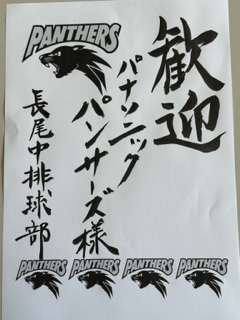 歓迎
パナソニック
パンサーズ様
長尾中排球部
PANTHERS
PANTHERS
PANTHERS
PANTHERS
PANTHERS